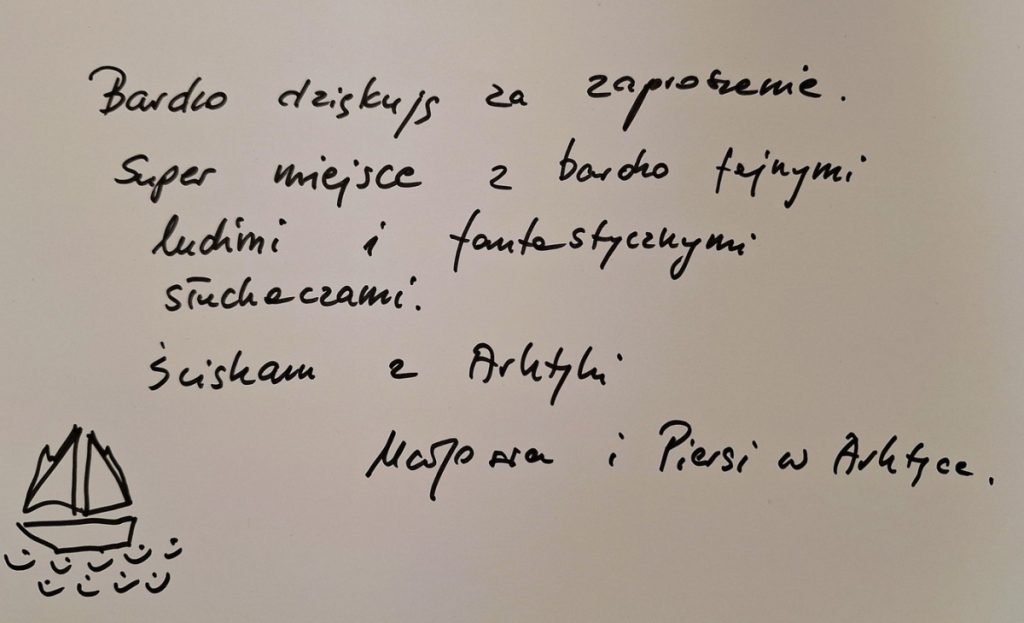 Bardzo dziękuję za zaproszenie.
Super miejsce z bardzo fajnymi
ludźmi i fantastycznymi
słuchaczami.
Ściskam z Arktyki
Małgorzata i Piersi w Arktyce.